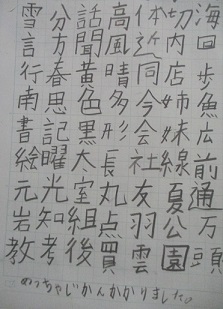 海回歩魚広前通万頭
切内店姉妹線夏公園
体近同今会社友羽雲
高風晴多形長丸点買
話聞黄色黒大室組後
分方春思記曜光知考
雪言行南書絵元岩教
めっちゃじかんかかりました。